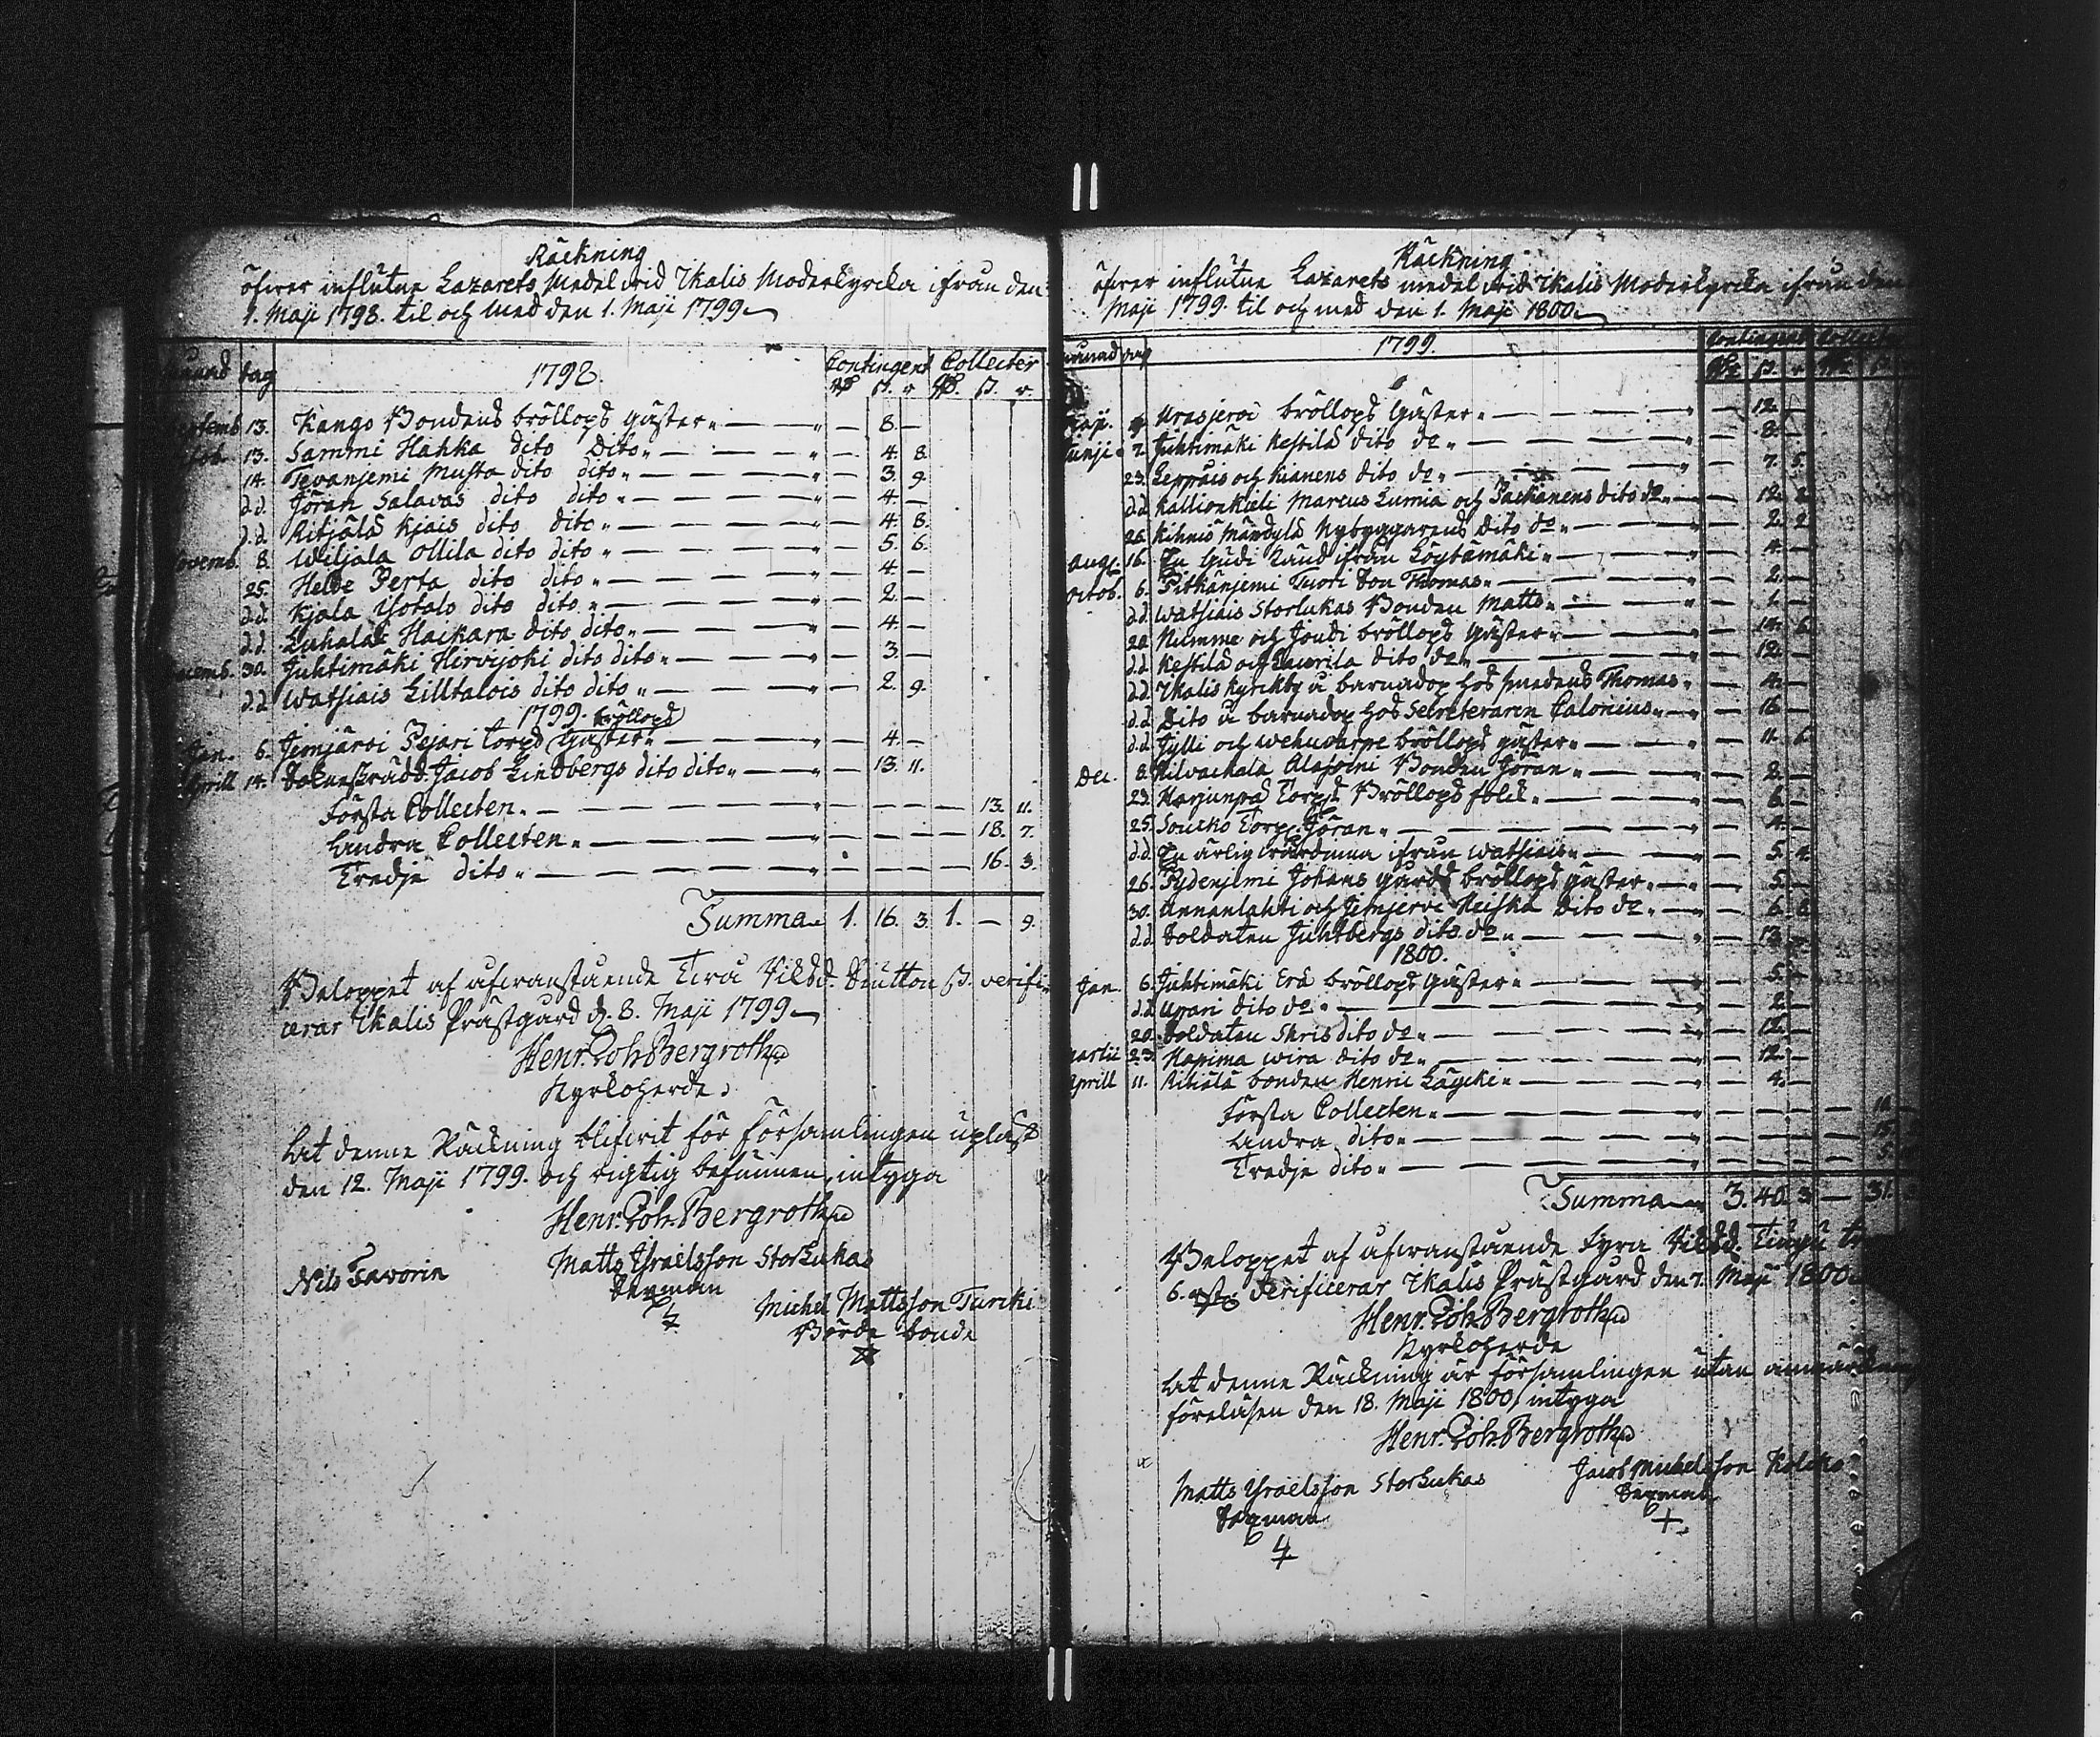 Räckning
öfver influtne Lazarets Medel vid Ikalis Moderkyrcka ifrån den
1. Maji 1798. til och med den 1. Maji 1799
dag 1798. Contingent Collecter
13. Kango Bondens bröllops gäster 8. —
13. Sammi Hahka dito dito 4. 8.
14. Tevanjemi Musta dito dito 3. 9.
d.d. Jöran Salavas dito dito 4. —
d.d. Ritjälä Kjais dito dito 4. 8.
8. Wiljala Ollila dito dito 5. 6.
25. Helde Perta dito dito 4. —
d.d. Kjala Yotalo dito dito 2. —
d.d. Luhalax Haikara dito dito 4. —
30. Juhtimäki Hirvijoki dito dito 3. —
d.d. Watsiais Lilltalois dito dito 2. 9.
1799. bröllops
Jan. 6. Jemjärvi Pejari torps gäster 4. —
April 14. Jacob Lindbergs dito dito 13. 11.
Första Collecten 13. 11.
Andra Collecten 18. 7.
Tredje dito 16. 3.
Summa 1. 16. 3. 1. — 9.
Beloppet af afvanstående Två Riksd. Siutton ß. verifi-
cerar Ikalis Prästgård d. 8. Maji 1799
Henr. Joh. Bergroth
Kyrkoherde
At denne Räckning blifvit för Församlingen upläst
den 12. Maji 1799. och rigtig befunnen, intyga
Henr. Joh. Bergroth
Nils Favorin Matts Israelsson Storlukas
Sexman
Michel Mattsson Turcki
Börde bonde
Räckning
öfver influtne Lazarets medel vid Ikalis Moderkyrcka ifrån den
Maji 1799. til och med den 1. Maji 1800
dag 1799. Contingent
Urasjervi bröllops Gäster 12. —
Junji 7. Juhtimäki Kestilä dito do 8. —
23. Leppäis och Kianens dito do 7. 5.
d.d. Kallionkieli Marcus Lumia och dito do 12.
26. Kihniö Mändylä Nybyggarens dito do 2. 2.
Aug. 16. En ifrån Löytämäki 4. —
Octob. 6. Pitkänjemi Tuori Son Thomas 2. —
d.d. Watsiais Storlukas Bonden Matts 1. —
20. Numme och Joudi bröllops Gäster 14. 6.
d.d. Kestilä och Laurila dito do 12. —
d.d. Ikalis Kyrckby å barnadop hos Smedens Thomas 4. —
d.d. Dito å barnadop hos Secreteraren Calonius 16 —
d.d. Jylli och Wehuvarpe bröllops gäster 11. 6.
Dec. 8. Kilvackala Bonden Jöran 2. —
23. Harjunpä Torps Bröllops folk 6. —
25. Soucko Torp. Jöran 4. —
d.d. En ärlig värdinna ifrån Watsiais 5. 4.
26. Sydenjemi Johans gårds bröllops gäster 5. —
30. Annanlahti och Jemjervi Heiska dito do 6.
d.d. Soldaten Juhtbergs dito do 13.
1800.
Jan. 6. Juhtimäki Erä bröllops Gäster 5. —
d.d. Upari dito do 2. —
20. Soldaten Skris dito do 12. —
23. Hapima Wira dito do 12. —
April 11. Ritiälä bonden Henric Läycki 4. —
Första Collecten
Andra dito 15.
Tredje dito 5.
Summa 3. 40. 3. — 31.
Beloppet af afvanstående Fyra Riksd. Tiugu
6. verificerar Ikalis Prästgård den 7. Maji 1800
Henr. Joh. Bergroth
Kyrkoherde
At denne Räckning är församlingen utan anmärkning
föreläsen den 18. Maji 1800, intyga
Henr. Joh. Bergroth
Matts Israelsson Storlukas Jacob Michelsson Kolcko
Sexman Sexman